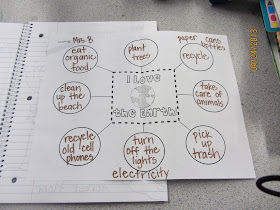 Mrs. B
eat
organic
food
plant
trees
paper cans
bottles
recycle
clean
up the
beach
I Love
the Earth
take
care of
animals
recycle
old cell
phones
turn
off the
lights
electricity
pick
up
trash